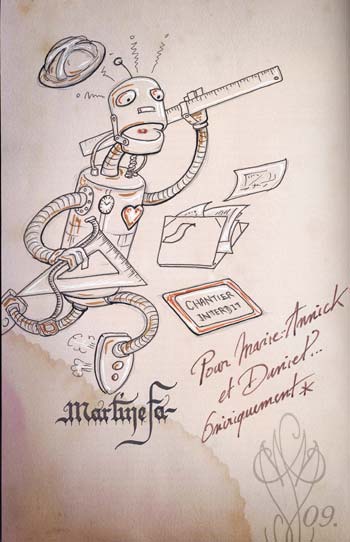 CHANTIER
INTERDIT
Pour Marie-Annick
et Daniel...
Oniriquement*
Martine Fa-
09.